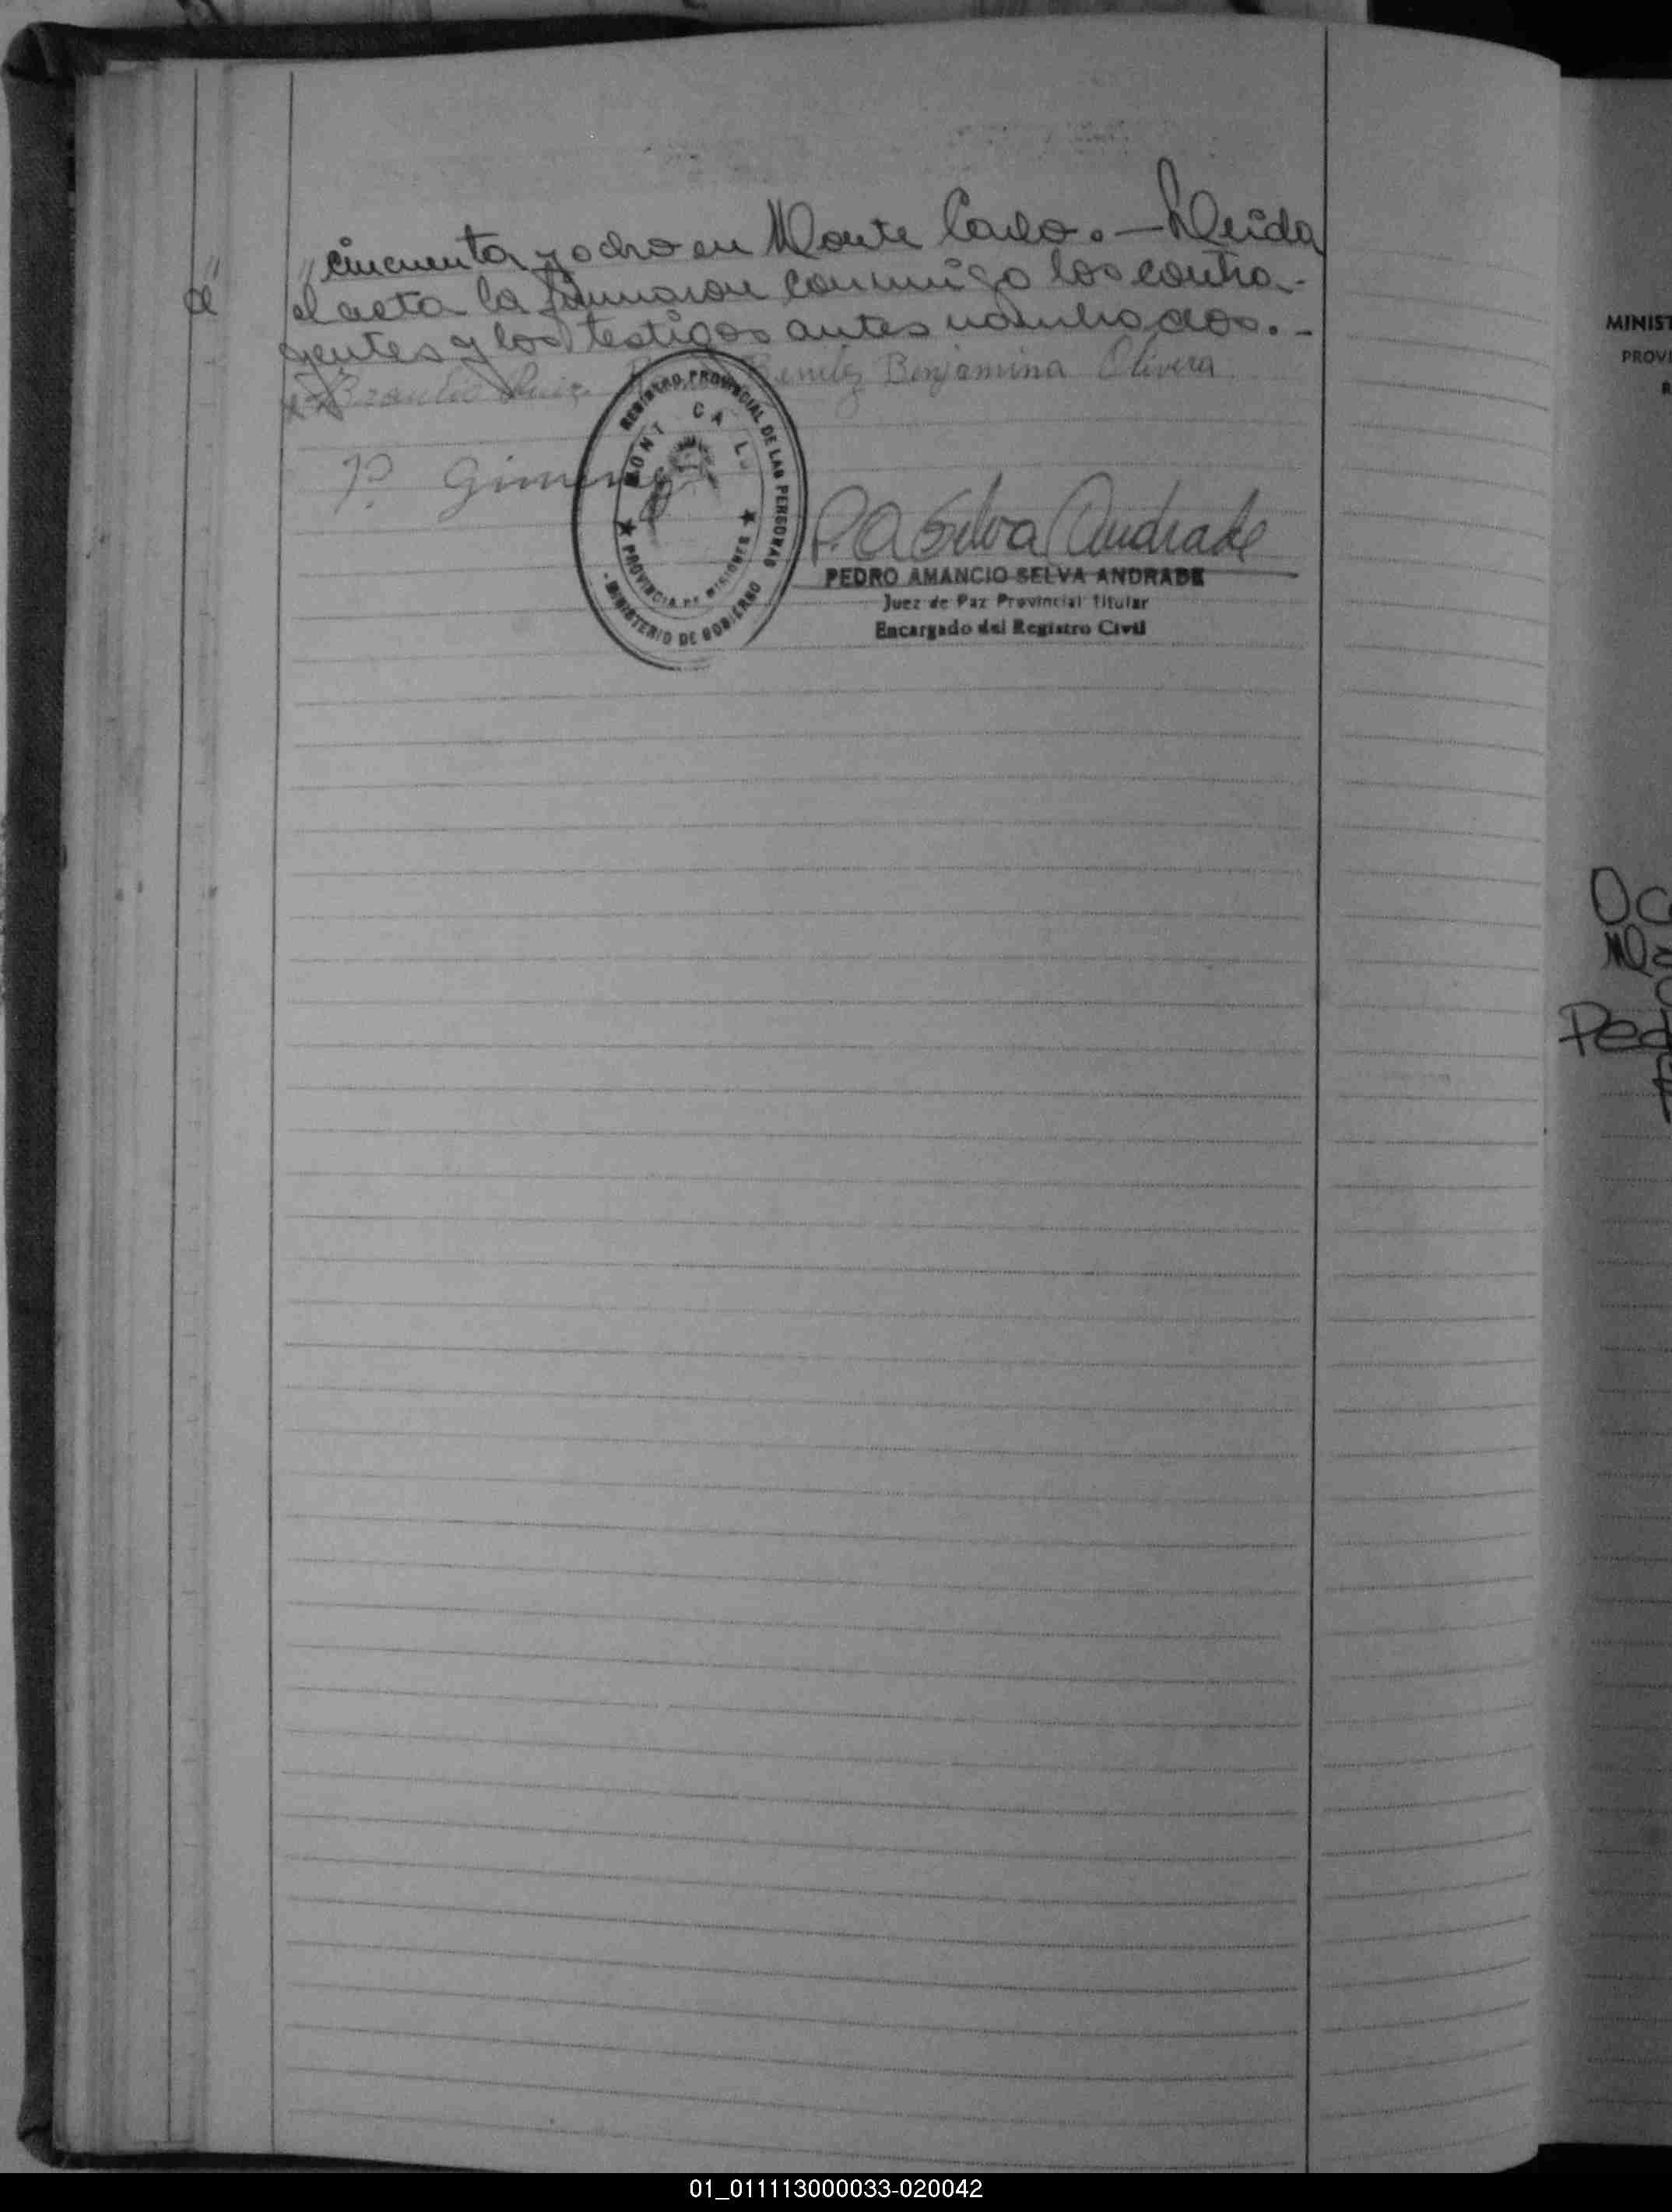 cincuenta y ocho en Monte Carlo. — Leida
el acta la firmaron conmigo los contra-
yentes y los testigos antes nombrados. -
Braulio Ruiz Benitez Benjamina Olivera
P. Gimenez
REGISTRO PROVINCIAL DE LAS PERSONAS
MONT CA LO
PROVINCIA DE MISIONES
- MINISTERIO DE GOBIERNO
P. A Selva Andrade
PEDRO AMANCIO SELVA ANDRADE
Juez de Paz Provincial Titular
Encargado del Registro Civil
MINIST
PROVI
R
Oc
Ma
Ped
01_011113000033-020042